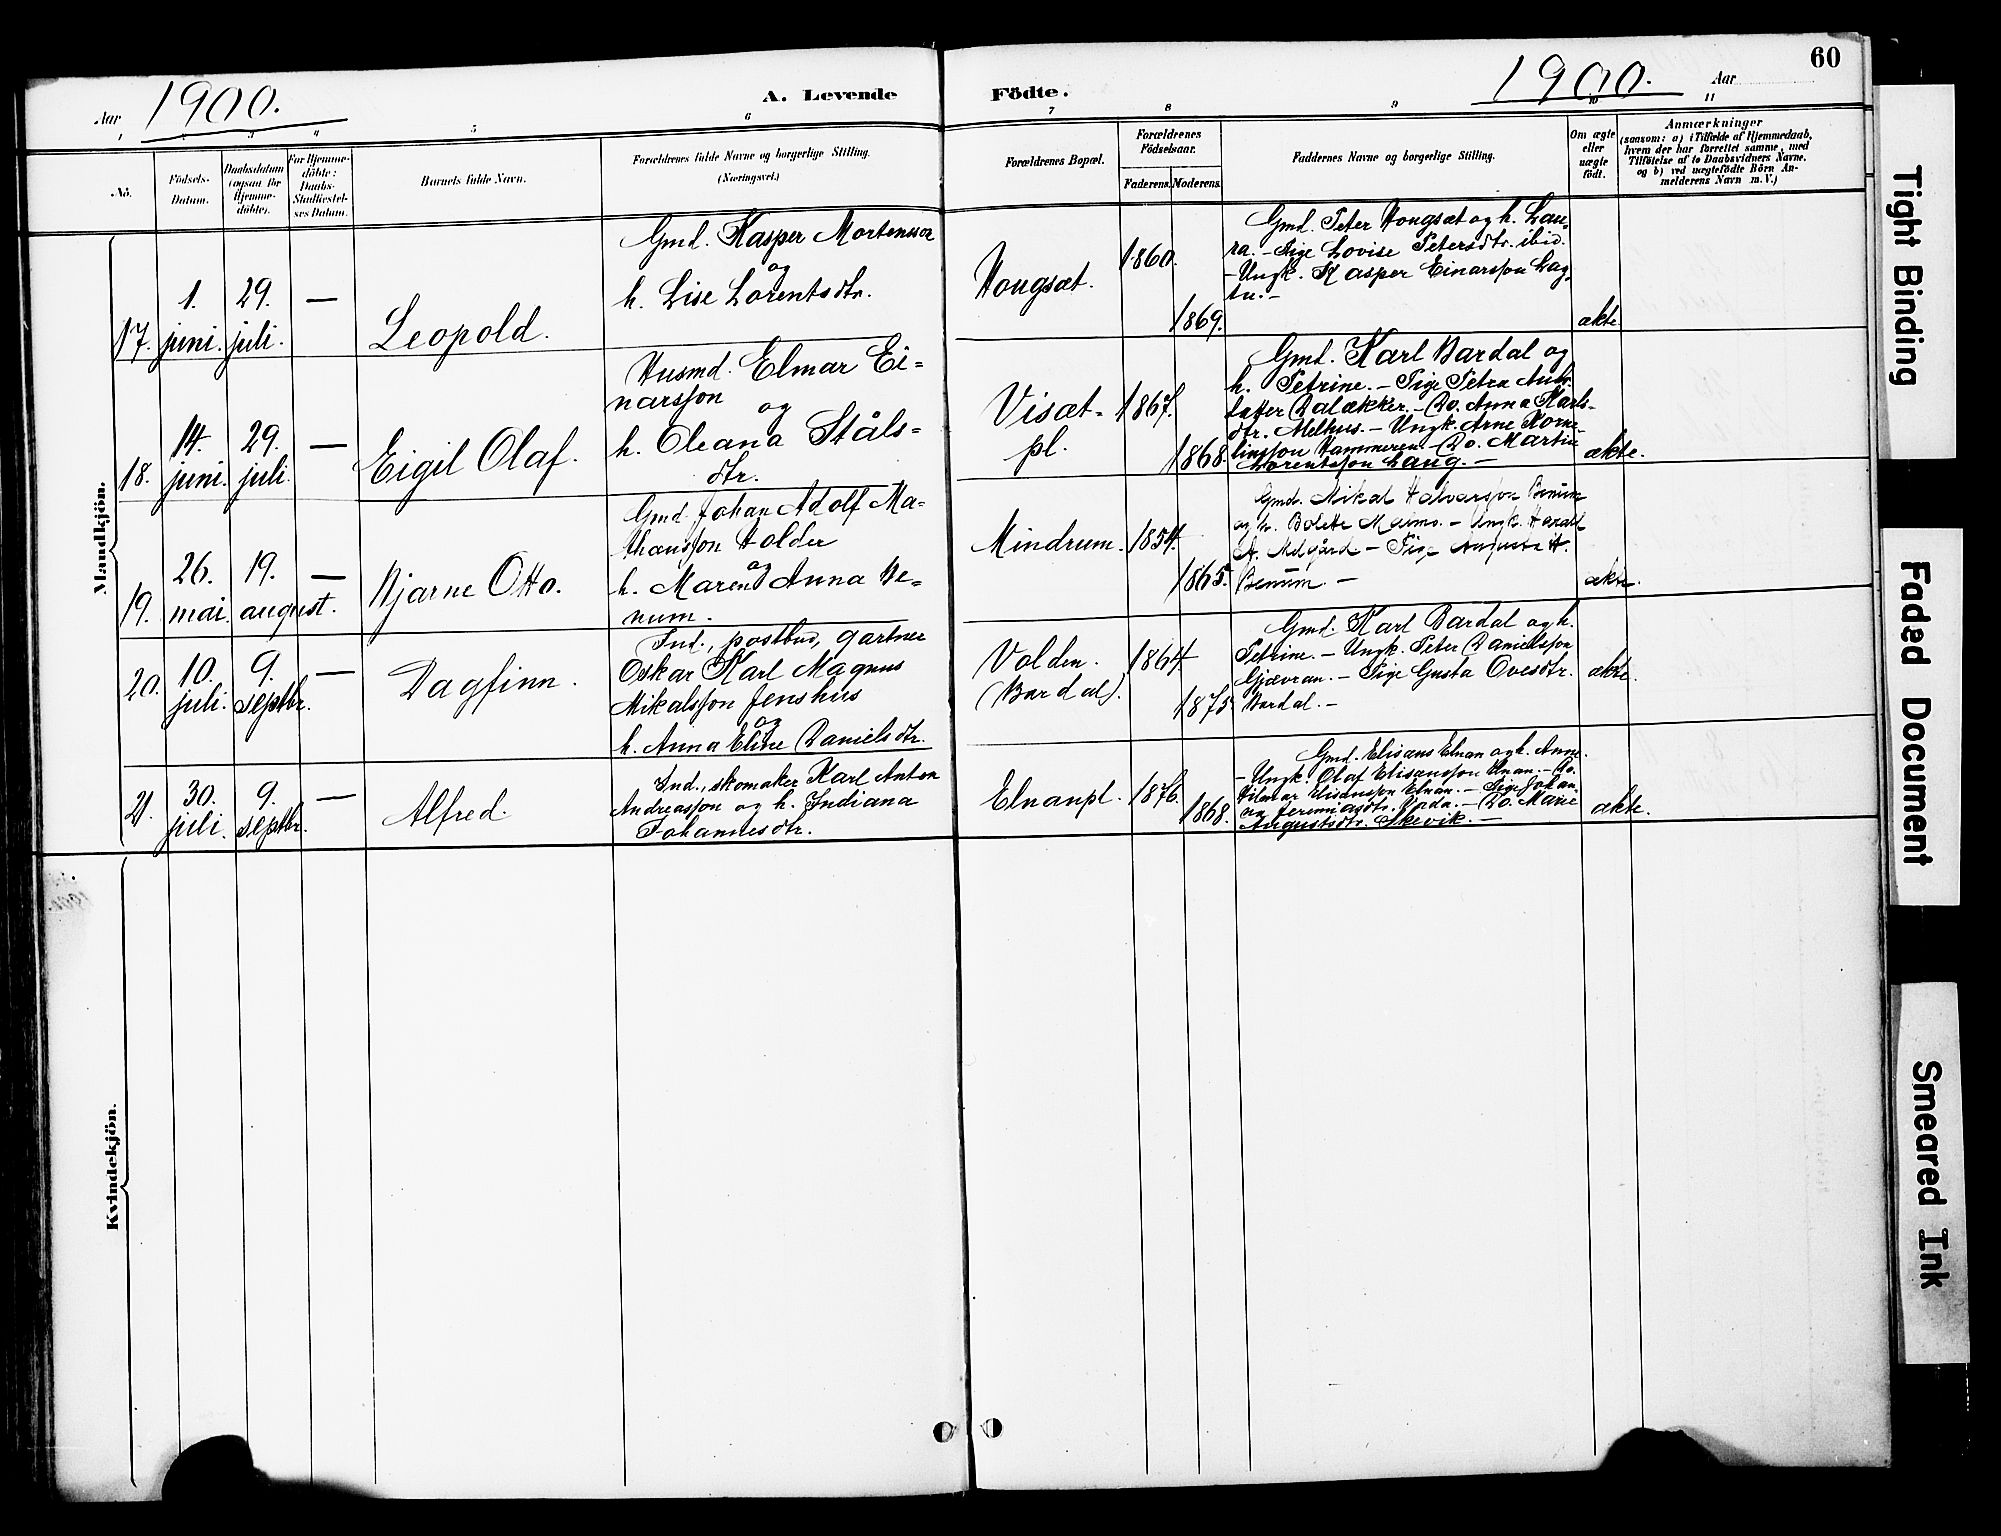 60
Aar 1900. A. Levende Födte. 1900. Aar
1 2 3 4 5 6 7 8 9 10 11
No.
Födsels-
Datum.
Daabsdatum
(ogsaa for
Hjemme-
döbte).
For Hjemme-
döbte:
Daabs-
Stadfæstel-
ses Datum.
Barnets fulde Navn.
Forældrenes fulde Navne og borgerlige Stilling.
(Næringsvei.)
Forældrenes Bopæl.
Forældrenes
Födselsaar.
Faderens. Moderens.
Faddernes Navne og borgerlige Stilling.
Om ægte
eller
uægte
födt.
Anmærkninger
(saasom: a) i Tilfælde af Hjemmedaab,
hvem der har forrettet samme, med
Tilföielse af to Daabsvidners Navne.
og b) ved uægtefödte Börn An-
melderens Navn m. V.)
Mandkjön.
17.
1.
juni.
29.
juli.
—
Leopold.
Gmd. Kasper Mortensson
og
h. Lise Lorentsdtr.
Hougsæt.
1860.
1869.
Gmd. Peter Hougsæt og h. Lau-
ra. – Pige Lovise Petersdtr. ibid.
– Ungk. Kasper Einarsson Lag-
tu. –
ækte
18.
14.
juni.
29.
juli.
—
Eigil Olaf.
Husmd. Elmar Ei-
narsson og
h. Oleana Ståls-
dtr.
Visæt-
pl.
1867.
1868.
Gmd. Karl Bardal og
h. Petrine. – Pige Petra
Dalækker. – Do. Anna Karls-
dtr. Melhus. – Ungk. Arne Korne-
linsson Hammeren. – Do. Martin
Lorentsson Laug. –
ækte.
19.
26.
mai.
19.
august.
—
Bjarne Otto.
Gmd. Johan Adolf Ma-
thæusson Holder
og
h. Maren Anna Be-
num.
Mindrum.
1854.
1865.
Gmd. Mikal Halvorsson Benum
og h. Bolette Marmo. – Ungk. Harald
A. Melgård – Pige Augusta H.
Benum. –
ækte.
20.
10.
juli.
9.
septbr.
—
Dagfinn.
Ind., postbud, gartner
Oskar Karl Magnus
Mikalsson Jenshus
og
h. Anna Eline Danielsdtr.
Volden.
(Bardal).
1864
1875
Gmd. Karl Bardal og h.
Petrine. – Ungk. Peter Danielsson
Gjævran. – Pige Gusta Ovesdtr.
Bardal. –
ækte.
21.
30.
juli.
9.
septbr.
—
Alfred.
Ind., skomaker Karl Anton
Andreasson og h. Indiana
Johannesdtr.
Elnanpl.
1876.
1868.
Gmd. Elisæus Elnan og h. Anne.
– Ungk. Olaf Elisæusson Elnan. – Do.
Hilmar Elisæusson Elnan. – Pige Johan-
na Jeremiasdtr. – Do. Marie
Augustsdtr. Skevik. –
ækte.
Kvindekjön.
Tight Binding
Faded Document
Smeared Ink